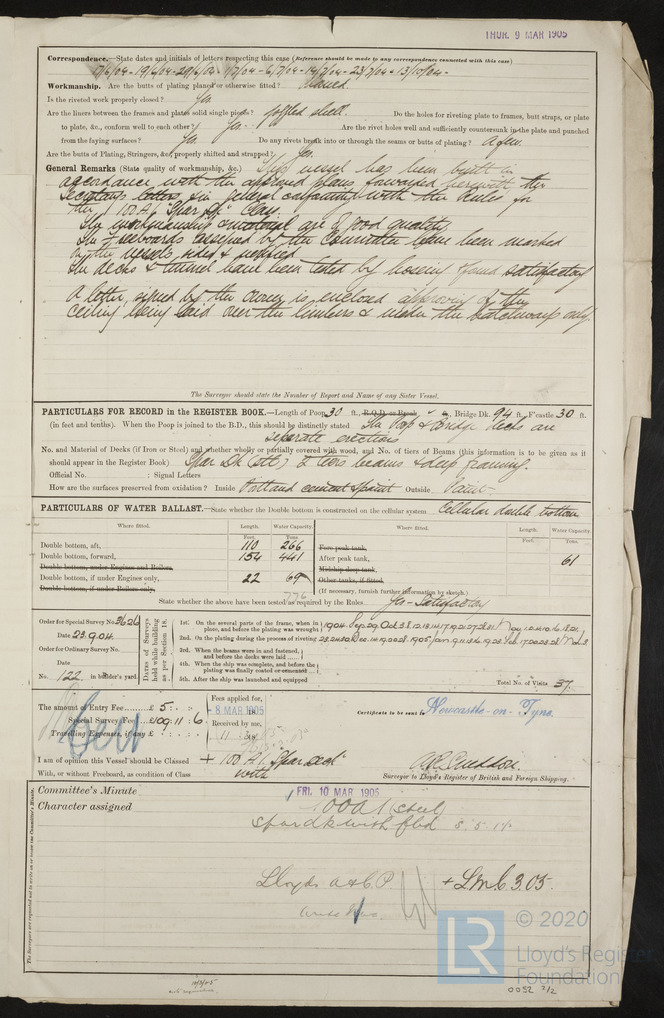 THUR. 9 MAR 1905
Correspondence.—State dates and initials of letters respecting this case (Reference should be made to any correspondence connected with this case)
Workmanship. Are the butts of plating planed or otherwise fitted? Planed.
Is the riveted work properly closed? Yes
Are the liners between the frames and plates solid single pieces? Joggled shell. Do the holes for riveting plate to frames, butt straps, or plate
to plate, &c., conform well to each other? Yes. Are the rivet holes well and sufficiently countersunk in the plate and punched
from the faying surfaces? Yes. Do any rivets break into or through the seams or butts of plating? A few.
Are the butts of Plating, Stringers, &c., properly shifted and strapped? Yes.
General Remarks (State quality of workmanship, &c.) This vessel has been built in
accordance with the approved plans forwarded herewith, the
Secretary's letters & in general conformity with the Rules for
the 100 A1 "Spar Dk" Class.
The workmanship & material are of good quality.
The freeboards assigned by the Committee have been marked
on the vessels sides & verified.
The decks & tunnel have been tested by hosing & found satisfactory
A letter, signed by the Owner, is enclosed approving of the
ceiling being laid over the limbers & under the hatchways only.
The Surveyor should state the Number of Report and Name of any Sister Vessel.
PARTICULARS FOR RECORD in the REGISTER BOOK.—Length of Poop 30 ft., R.Q.D. or Break ft., Bridge Dk. 94 ft. F'castle 30 ft.
(in feet and tenths). When the Poop is joined to the B.D., this should be distinctly stated The Poop & Bridge decks are
separate erections
No. and Material of Decks (if Iron or Steel) and whether wholly or partially covered with wood, and No. of tiers of Beams (this information is to be given as it
should appear in the Register Book) Spar Dk (Stl) 2 tiers beams & deep framing.
Official No. ; Signal Letters
How are the surfaces preserved from oxidation? Inside Portland cement & paint Outside Paint
PARTICULARS OF WATER BALLAST.—State whether the Double bottom is constructed on the cellular system Cellular double bottom
Where fitted. Length. Water Capacity. Where fitted. Length. Water Capacity.
Feet. Tons. Feet. Tons.
Double bottom, aft, 110 266 Fore peak tank,
Double bottom, forward, 154 441 After peak tank, 61
Double bottom, under Engines and Boilers, Midship deep tank,
Double bottom, if under Engines only, 22 69 Other tanks, if fitted,
Double bottom, if under Boilers only, 776 (If necessary, furnish further information by sketch.)
State whether the above have been tested as required by the Rules Yes - Satisfactory
Order for Special Survey No. 3626
Date 23.9.04
Order for Ordinary Survey No.
Date
No. 122 in builder's yard.
Dates of Surveys held while building as per Section 18.
1st. On the several parts of the frame, when in place, and before the plating was wrought
2nd. On the plating during the process of riveting
3rd. When the beams were in and fastened, and before the decks were laid
4th. When the ship was complete, and before the plating was finally coated or cemented
5th. After the ship was launched and equipped
Total No. of Visits 37.
The amount of Entry Fee £ 5 : :
Special Survey Fee £109 : 11 : 6
Travelling Expenses, if any £
Fees applied for,
8 MAR 1905
Received by me,
Certificate to be sent to Newcastle-on-Tyne
I am of opinion this Vessel should be Classed + 100 A1 "Spar Deck"
With, or without Freeboard, as condition of Class with
Surveyor to Lloyd's Register of British and Foreign Shipping.
Committee's Minute FRI. 10 MAR 1905
Character assigned 100A1 (steel)
Spar dk with fbd
Lloyds A & C P. + LMC 3.05.
The Surveyors are requested not to write on or below the Committee's Minute.
LR © 2020
Lloyd's Register
Foundation
10/3/05
0052 2/2